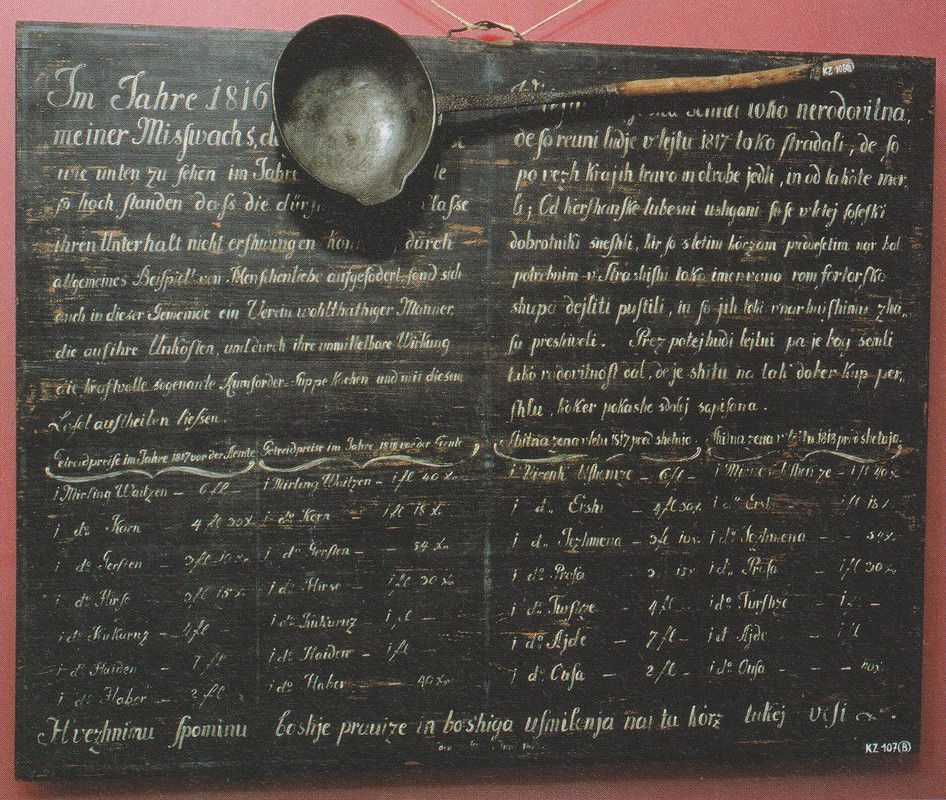 Im Jahre 1816
meiner Misswachs,
wie unten zu sehen im Jahre
so hoch standen dass die
ihren Unterhalt nicht erschwingen durch
allgemeines Beispiel von Menschenliebe aufgefodert, fand sich
auch in dieser Gemeinde ein Verein wohlthäthiger Männer,
die auf ihre Unkosten, und durch ihre unmittelbare Wirkung
die kraftvolle sogenante Rumforder-Suppe kochen und mit diesem
Lefel austheilen liessen.
Getreidpreise im Jahre 1817 vor der Ernte
1 Mirling Waitzen – 6 fl –
1 do Korn 4 fl 30 x
1 do Gersten – 3 fl 10 x
1 do Hirse 3 fl 15 x
1 do Kukuruz – 4 fl
1 do Haiden – 7 fl
1 do Haber – 2 fl
Getreidpreise im Jahre 1818 vor der Ernte
1 Mirling Waitzen – 1 fl 40 x
1 do Korn – 1 fl 18 x
1 do Gersten – 54 x
1 do Hirse 1 fl 30 x
1 do Kukuruz – 1 fl –
1 do Haiden – 1 fl –
1 do Haber – 40 x
semla toko nerodovitna,
de so reuni ludje v lejtu 1817 toko stradali, de so
po vezh krajih travo in otrobe jedli, in od lakote mer,
li; Od kershanske lubesni ushgani so se v letej soseski
dobrotniki sneshli, kir so s letim
potrebnim v Strashishu toko imenvano romforlarsko
shupo dejliti pustili, in so jih toko
shu preshiveli. Prez potej hudi lejtini pa je bog semli
tako rodovitnost dal, de je shitu na tak dober kup per,
shlu, koker pokashe sdolej sapisana.
Shitna zena v letu 1817 pred shetnjo.
1 Mirenk Pshenize – 6 fl –
1 do Ershi – 4 fl 30 x
1 do Jezhmena – 3 fl 10 x
1 do Prosa 3 15 x
1 do Turshze – 4 fl –
1 do Ajde – 7 fl –
1 do Ousa – 2 fl –
Shitna zena v lejtu 1818 pred shetvjo.
1 Pshenize – 1 fl 40 x
1 do Ersh 1 fl 18 x
1 do Jezhmena – 54 x
1 do Prosa – 1 fl 30 x
1 do Turshze – 1 –
1 do Ajde – 1 fl
1 do Ousa – 40 x
H vezhnimu spominu boshje pravize in boshiga usmilenja naj ta kórz tukej visi
KZ 108
KZ 107(B)